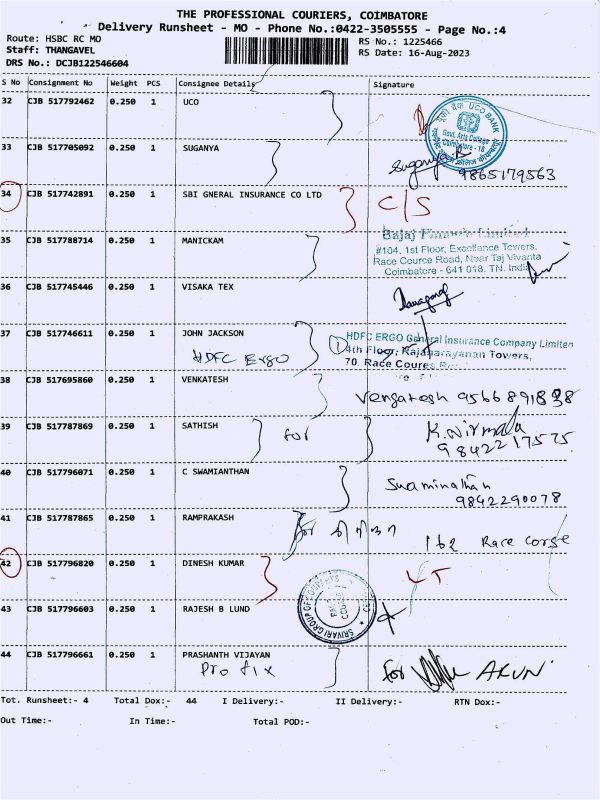 THE PROFESSIONAL COURIERS, COIMBATORE
Delivery Runsheet - MO - Phone No.:0422-3505555 - Page No.:4
Route: HSBC RC MO
RS No.: 1225466
Staff: THANGAVEL
RS Date: 16-Aug-2023
DRS No.: DCJB122546604
S No Consignment No Weight PCS Consignee Details Signature
32 CJB 517792462 0.250 1 UCO
UCO BANK
Govt. Arts College
Coimbatore - 18
33 CJB 517705092 0.250 1 SUGANYA
Suganya R
9865179563
34 CJB 517742891 0.250 1 SBI GNERAL INSURANCE CO LTD
C/S
Bajaj Finance Limited
35 CJB 517788714 0.250 1 MANICKAM
#104, 1st Floor, Excellence Towers,
Race Cource Road, Near Taj Vivanta
Coimbatore - 641 018. TN. India
36 CJB 517745446 0.250 1 VISAKA TEX
37 CJB 517746611 0.250 1 JOHN JACKSON
HDFC Ergo
1
HDFC ERGO General Insurance Company Limited
4th Floor, Rajanarayanan Towers,
70, Race Coures
38 CJB 517695860 0.250 1 VENKATESH
Vengatesh 9566891838
39 CJB 517787869 0.250 1 SATHISH
for
K.Nirmala
9842217575
40 CJB 517796071 0.250 1 C SWAMIANTHAN
Swaminathan
9842290078
41 CJB 517787865 0.250 1 RAMPRAKASH
for
162 Race Corse
42 CJB 517796820 0.250 1 DINESH KUMAR
LT
43 CJB 517796603 0.250 1 RAJESH B LUND
SRIVARI GROUP OF COMPANYS
44 CJB 517796661 0.250 1 PRASHANTH VIJAYAN
Pro fix
for ARUN
Tot. Runsheet:- 4 Total Dox:- 44 I Delivery:- II Delivery:- RTN Dox:-
Out Time:- In Time:- Total POD:-